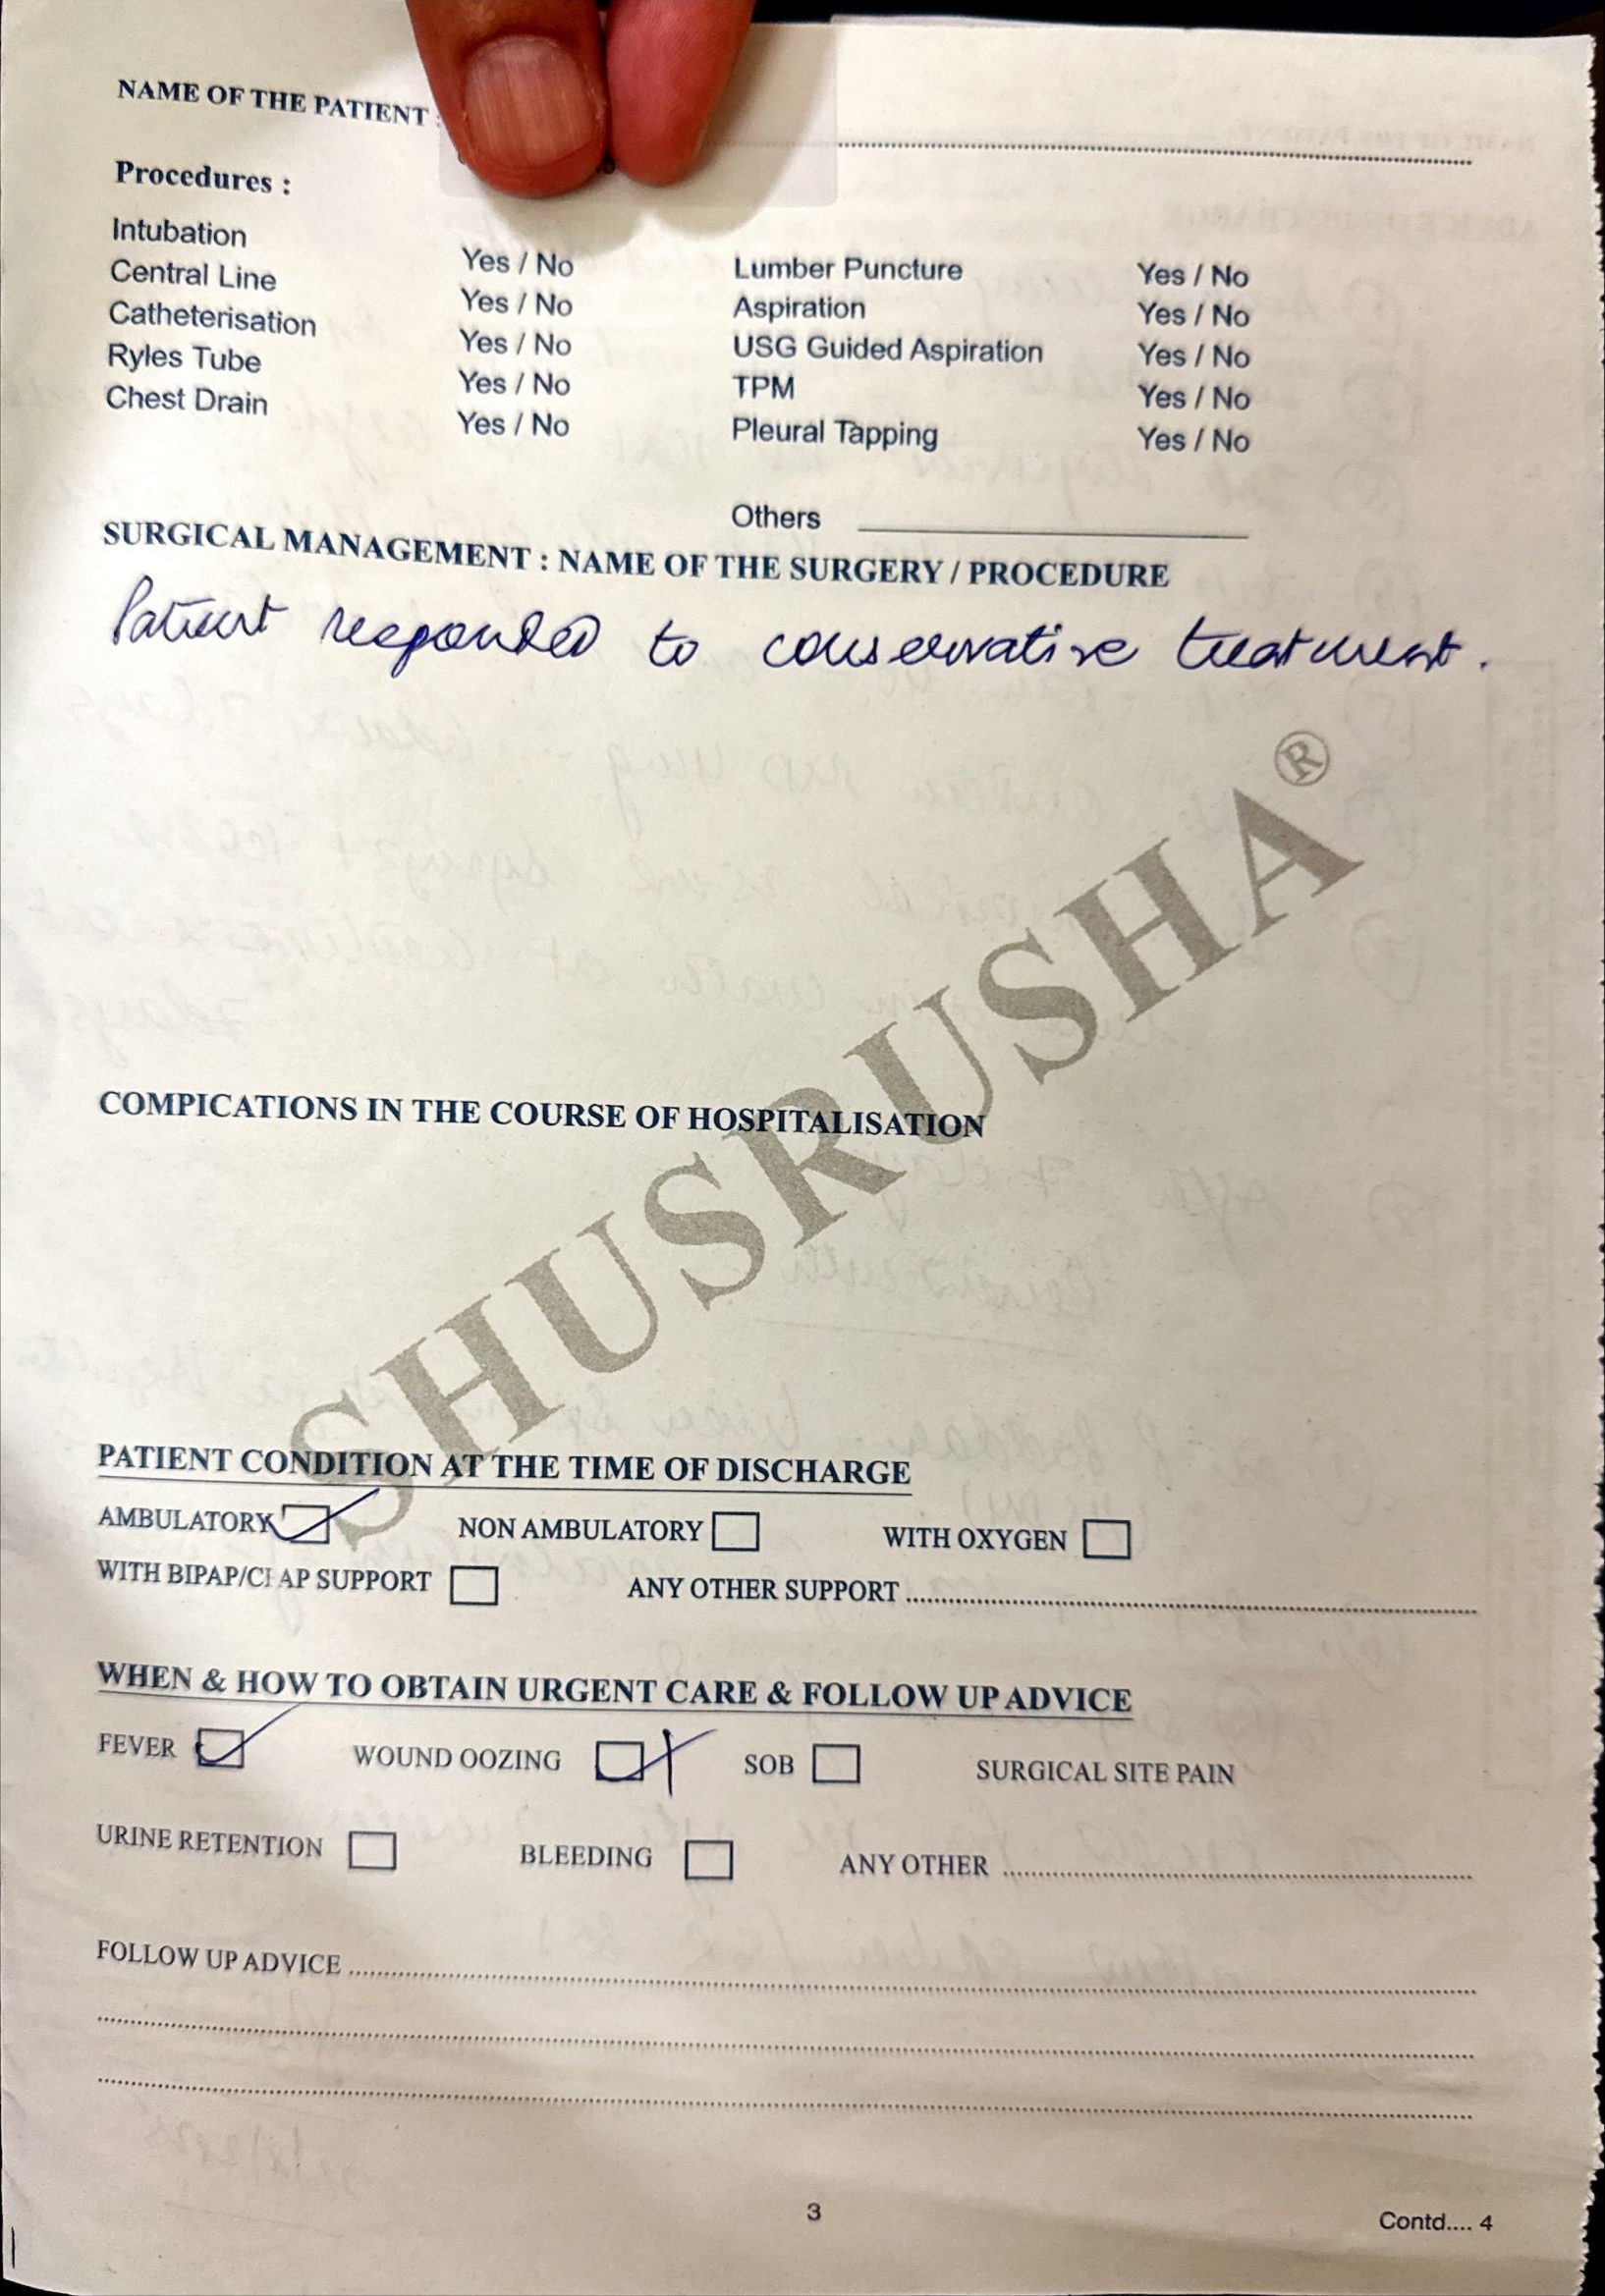 NAME OF THE PATIENT :
Procedures :
Intubation Yes / No Lumber Puncture Yes / No
Central Line Yes / No Aspiration Yes / No
Catheterisation Yes / No USG Guided Aspiration Yes / No
Ryles Tube Yes / No TPM Yes / No
Chest Drain Yes / No Pleural Tapping Yes / No
Others
SURGICAL MANAGEMENT : NAME OF THE SURGERY / PROCEDURE
Patient responded to conservative treatment.
SHUSRUSHA®
COMPICATIONS IN THE COURSE OF HOSPITALISATION
PATIENT CONDITION AT THE TIME OF DISCHARGE
AMBULATORY NON AMBULATORY WITH OXYGEN
WITH BIPAP/CPAP SUPPORT ANY OTHER SUPPORT
WHEN & HOW TO OBTAIN URGENT CARE & FOLLOW UP ADVICE
FEVER WOUND OOZING SOB SURGICAL SITE PAIN
URINE RETENTION BLEEDING ANY OTHER
FOLLOW UP ADVICE
3
Contd.... 4